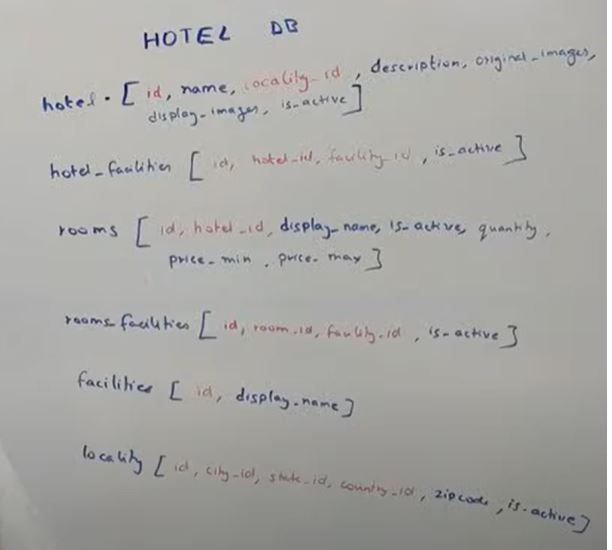 HOTEL DB
hotel - [ id, name, locality_id, description, original_images,
display_images, is_active ]
hotel_facilities [ id, hotel_id, facility_id, is_active ]
rooms [ id, hotel_id, display_name, is_active, quantity,
price_min, price_max ]
rooms_facilities [ id, room_id, facility_id, is_active ]
facilities [ id, display_name ]
locality [ id, city_id, state_id, country_id, zipcode, is_active ]